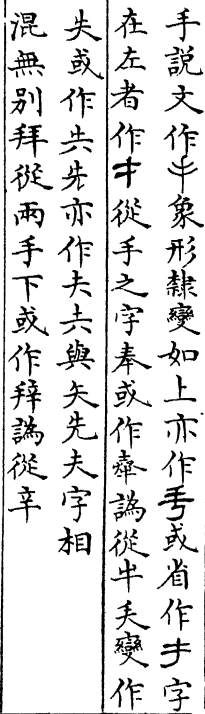 手說文作象形隸變如上亦作或省作字
在左者作從手之字奉或作譌從牛失變作
失或作先亦作夫與矢先夫字相
混無別拜從兩手下或作譌從辛